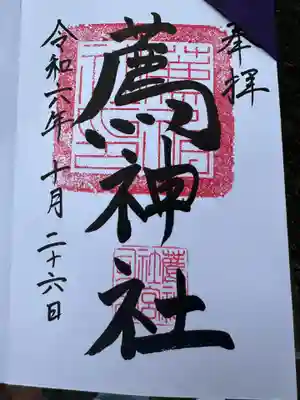 奉拝
薦神社
令和六年十月二十六日